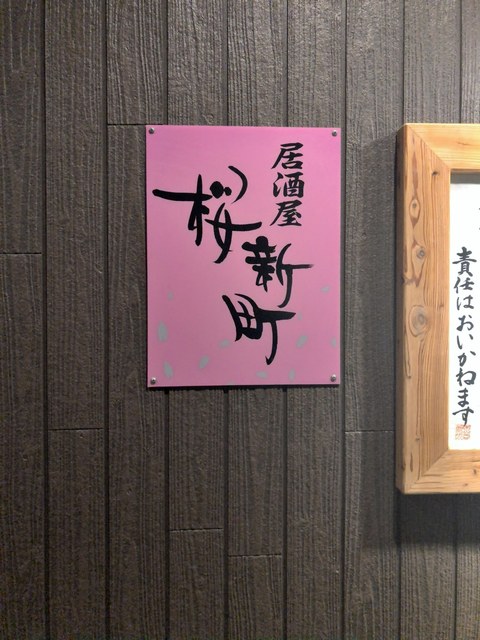 居酒屋
桜新町
責任はおいかねます